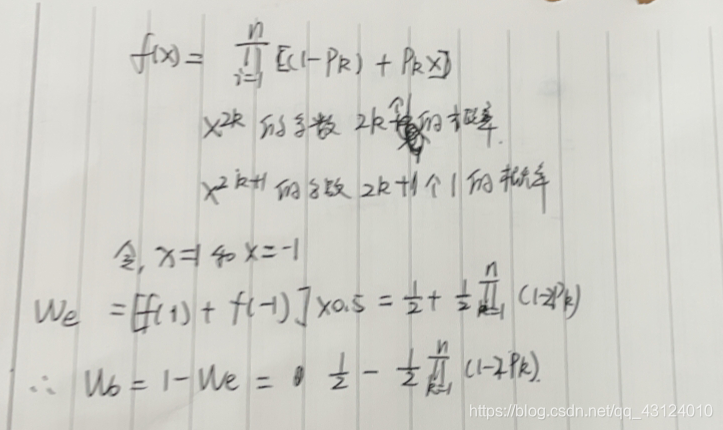 f(x) = ∏_{i=1}^{n} [(1-Pk) + PkX]
x^{2k} 的系数 2k个1的概率.
x^{2k+1} 的系数 2k+1个1的概率
令, x=1 和 x=-1
We = [f(1) + f(-1)] ×0.5 = 1/2 + 1/2 ∏_{k=1}^{n} (1-2Pk)
∴ Wo = 1 - We = 1/2 - 1/2 ∏_{k=1}^{n} (1-2Pk).
https://blog.csdn.net/qq_43124010